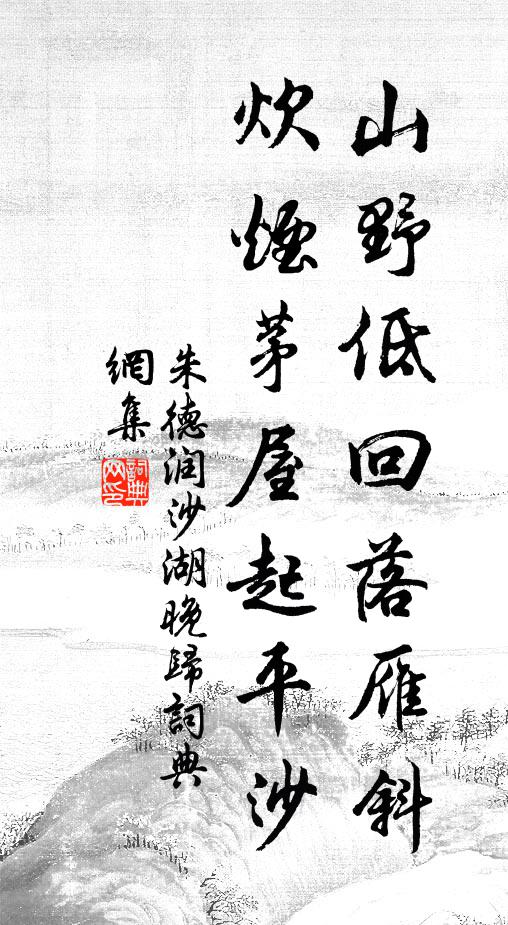 山野低回落雁斜
炊煙茅屋起平沙
朱德润沙湖晚歸詞典
網集
詞典
网印